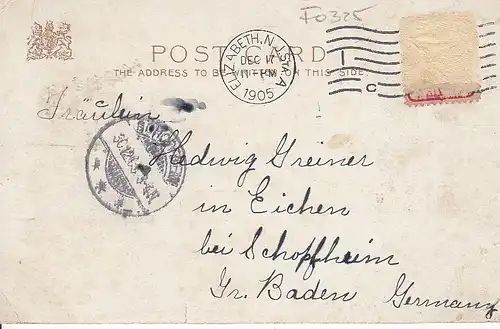 F0325
POST CARD
THE ADDRESS TO BE WRITTEN ON THIS SIDE.
ELIZABETH, N.J. STA. A
DEC 17
11-PM
1905
1
C
Fräulein
Hedwig Greiner
in Eichen
bei Schopfheim
Gr. Baden Germany